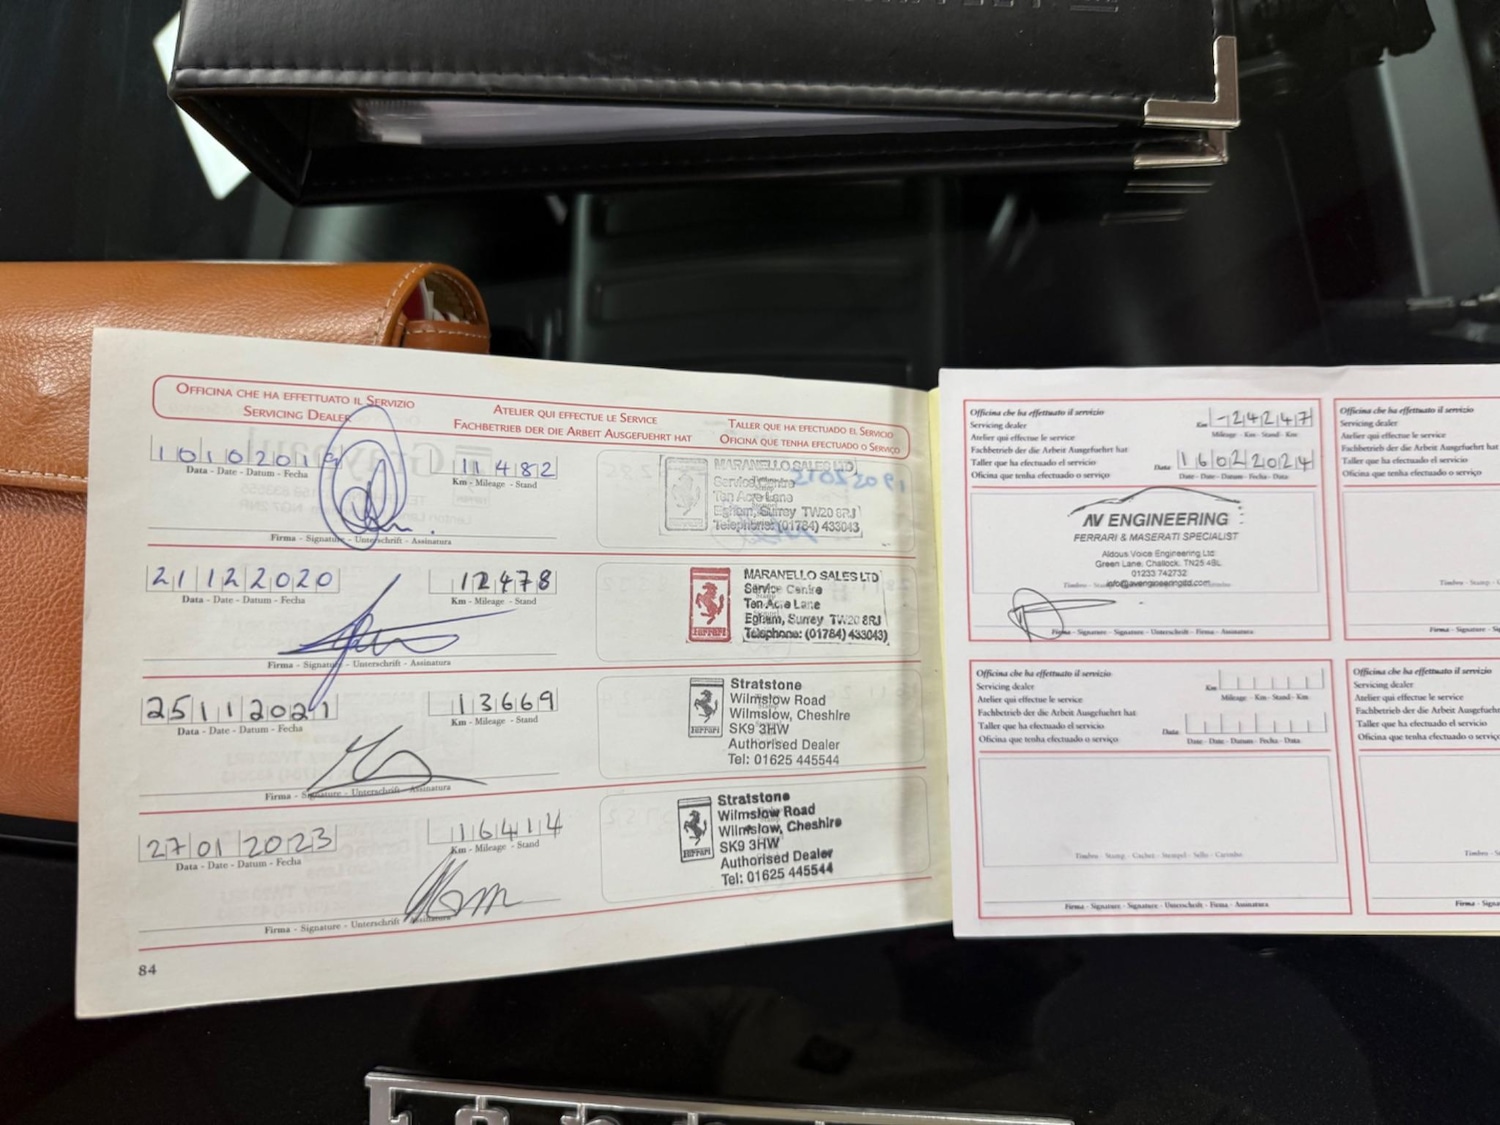 OFFICINA CHE HA EFFETTUATO IL SERVIZIO
SERVICING DEALER
ATELIER QUI EFFECTUE LE SERVICE
FACHBETRIEB DER DIE ARBEIT AUSGEFUEHRT HAT
TALLER QUE HA EFECTUADO EL SERVICIO
OFICINA QUE TENHA EFECTUADO O SERVIÇO
10102019
Data - Date - Datum - Fecha
11482
Km - Mileage - Stand
Firma - Signature - Unterschrift - Assinatura
MARANELLO SALES LTD
Service Centre
Ten Acre Lane
Egham, Surrey TW20 8RJ
Telephone: (01784) 433043
21122020
Data - Date - Datum - Fecha
12478
Km - Mileage - Stand
Firma - Signature - Unterschrift - Assinatura
Ferrari
MARANELLO SALES LTD
Service Centre
Ten Acre Lane
Egham, Surrey TW20 8RJ
Telephone: (01784) 433043
25112021
Data - Date - Datum - Fecha
13669
Km - Mileage - Stand
Firma - Signature - Unterschrift - Assinatura
Ferrari
Stratstone
Wilmslow Road
Wilmslow, Cheshire
SK9 3HW
Authorised Dealer
Tel: 01625 445544
27012023
Data - Date - Datum - Fecha
16414
Km - Mileage - Stand
Firma - Signature - Unterschrift - Assinatura
Ferrari
Stratstone
Wilmslow Road
Wilmslow, Cheshire
SK9 3HW
Authorised Dealer
Tel: 01625 445544
84
Officina che ha effettuato il servizio
Servicing dealer
Atelier qui effectue le service
Fachbetrieb der die Arbeit Ausgefuehrt hat
Taller que ha efectuado el servicio
Oficina que tenha efectuado o serviço
Km -24247
Mileage - Km - Stand - Km
Data 16022024
Date - Date - Datum - Fecha - Data
AV ENGINEERING
FERRARI & MASERATI SPECIALIST
Aldous Voice Engineering Ltd
Green Lane, Challock, TN25 4BL
01233 742732
info@avengineeringltd.com
Firma - Signature - Signature - Unterschrift - Firma - Assinatura
Officina che ha effettuato il servizio
Servicing dealer
Atelier qui effectue le service
Fachbetrieb der die Arbeit Ausgefuehrt
Taller que ha efectuado el servicio
Oficina que tenha efectuado o serviço
Timbro - Stamp - C
Firma - Signature - S
Officina che ha effettuato il servizio
Servicing dealer
Atelier qui effectue le service
Fachbetrieb der die Arbeit Ausgefuehrt hat
Taller que ha efectuado el servicio
Oficina que tenha efectuado o serviço
Km
Mileage - Km - Stand - Km
Data
Date - Date - Datum - Fecha - Data
Timbro - Stamp - Cachet - Stempel - Sello - Carimbo
Firma - Signature - Signature - Unterschrift - Firma - Assinatura
Officina che ha effettuato il servizio
Servicing dealer
Atelier qui effectue le service
Fachbetrieb der die Arbeit Ausgefuehr
Taller que ha efectuado el servicio
Oficina que tenha efectuado o serviç
Timbro - S
Firma - Signa